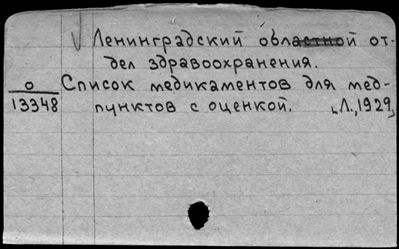 Ленинградский областной от-
дел здравоохранения.
о Список медикаментов для мед-
13348 пунктов с оценкой. Л., 1929,